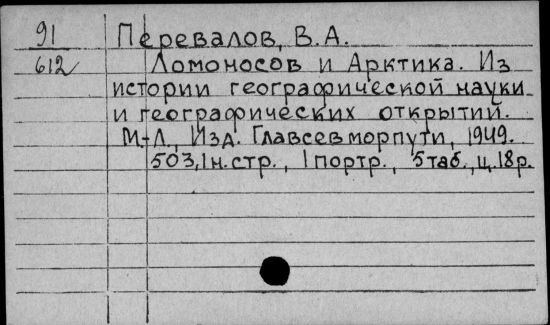 91 Перевалов, В.А.
612 Ломоносов и Арктика. Из
истории географической науки
и географических открытий.
М-Л., Изд. Главсевморпути, 1949.
503,1н.стр., 1портр., 5таб., ц.18р.